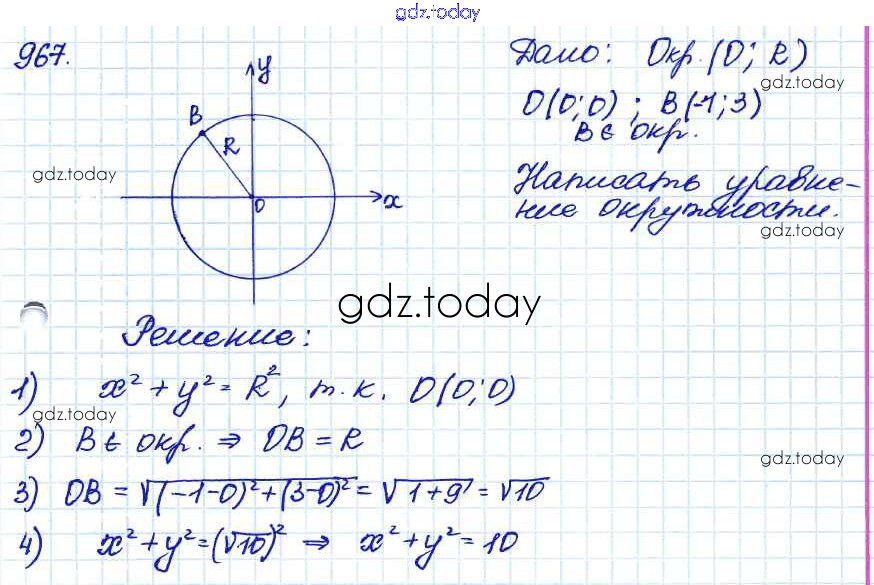 gdz.today
967.
y
B
R
O
x
Дано: Окр. (O; R)
gdz.today
O(0;0) ; B(-1;3)
B ∈ окр.
gdz.today
Написать уравне-
ние окружности.
gdz.today
gdz.today
Решение:
1) x² + y² = R², т.к. O(0;0)
gdz.today
2) B ∈ окр. ⇒ OB = R
gdz.today
3) OB = √((-1-0)²+(3-0)²) = √(1+9) = √10
4) x² + y² = (√10)² ⇒ x² + y² = 10